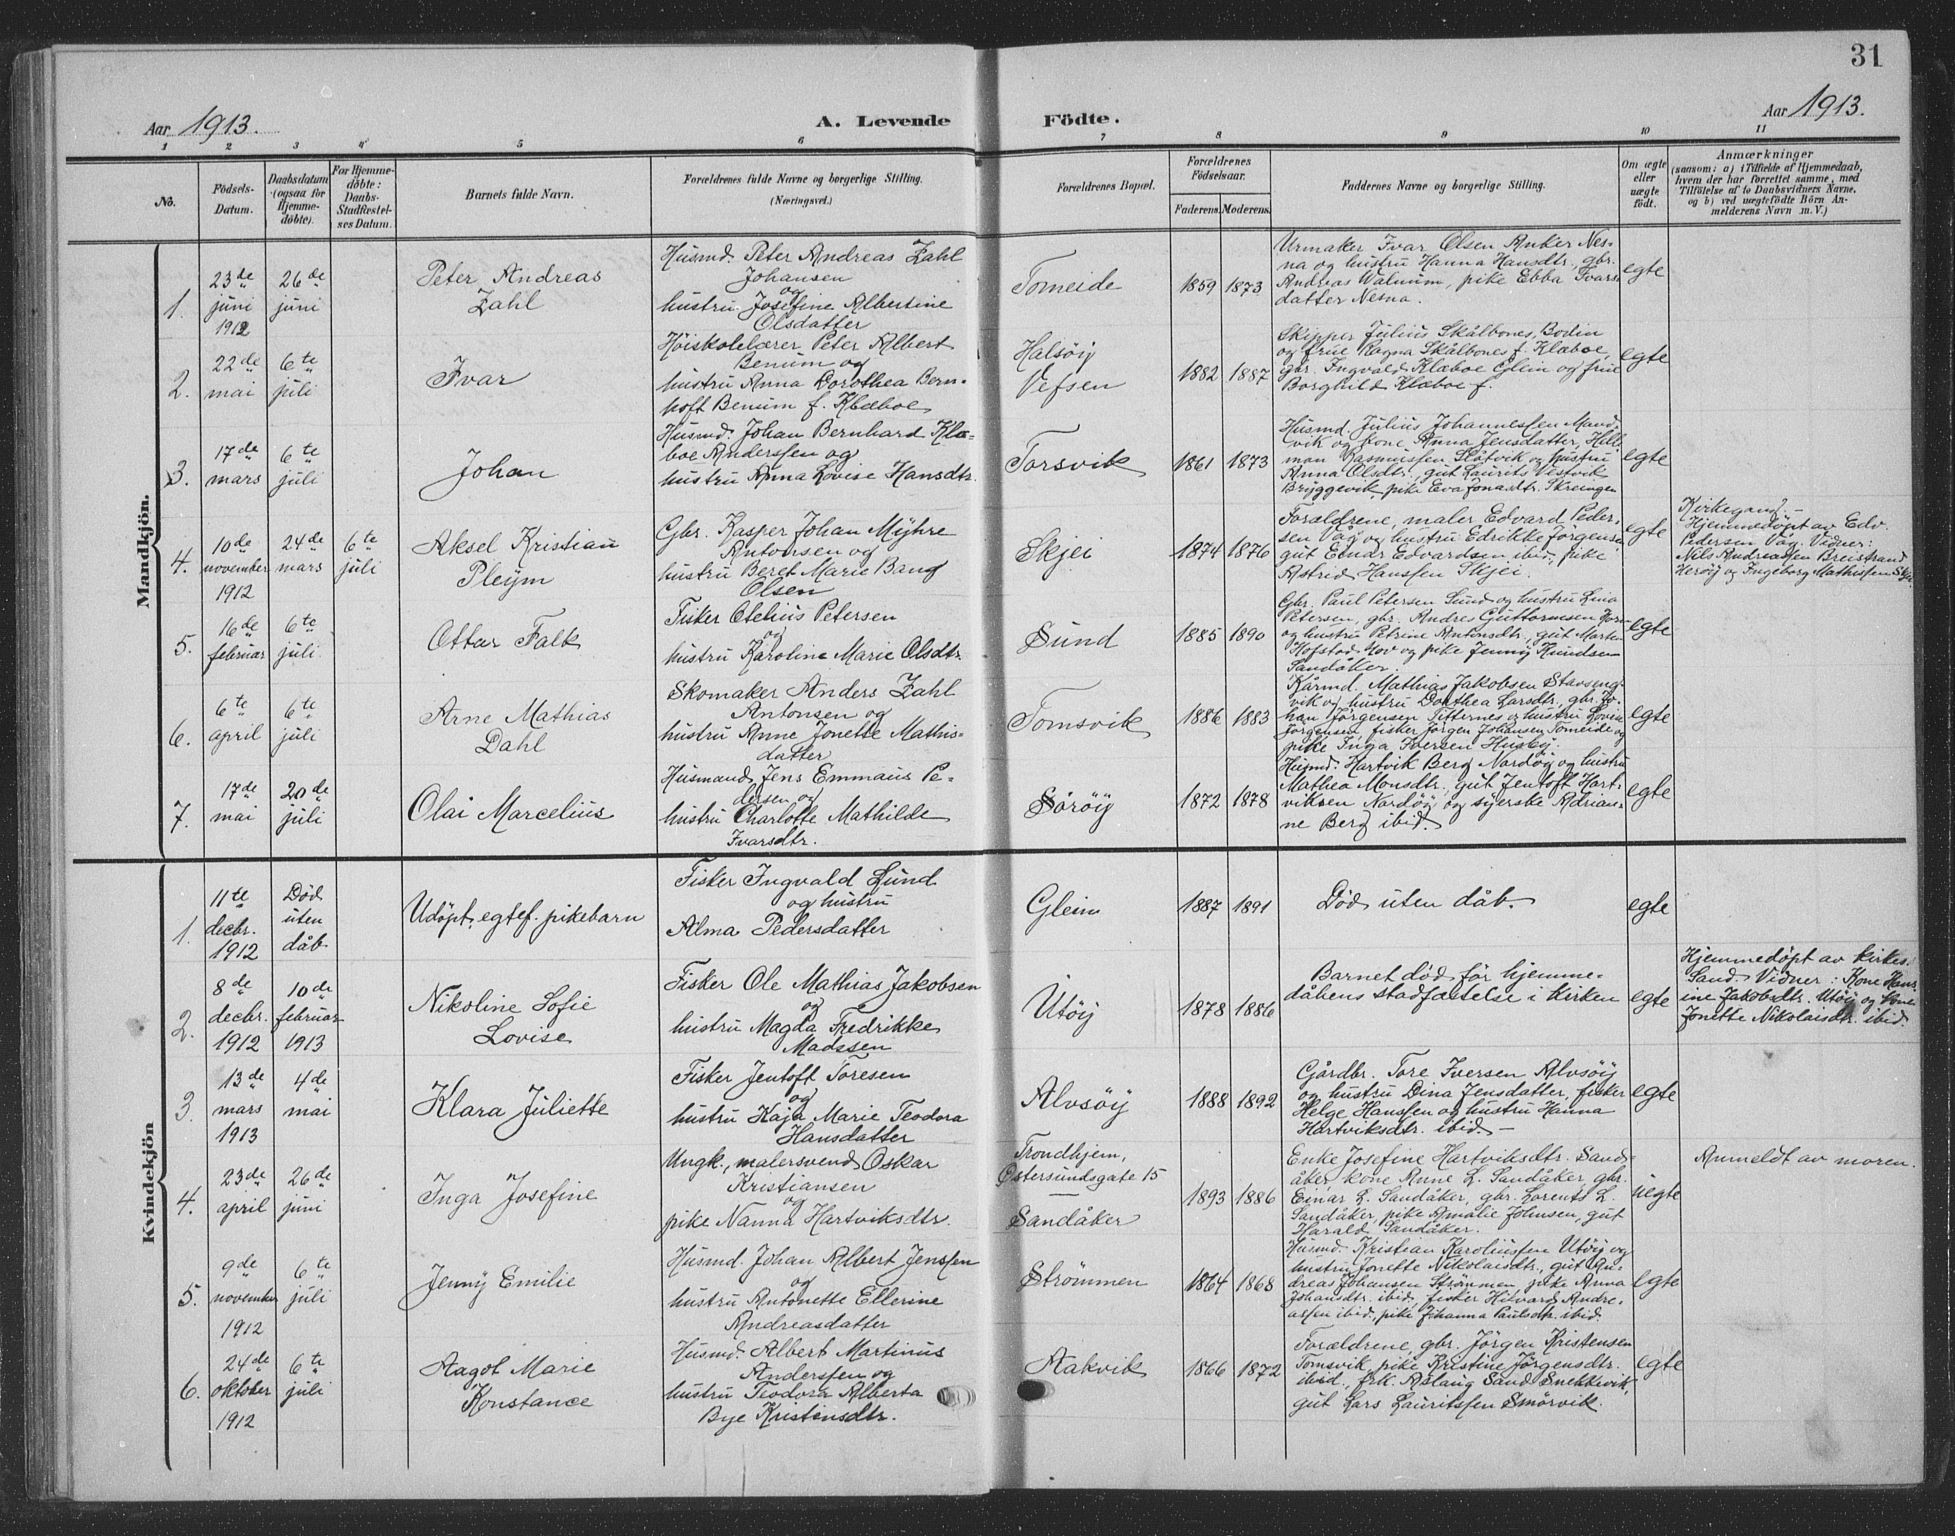 31
Aar 1913.
A. Levende
Födte.
Aar 1913.
1 2 3 4 5 6 7 8 9 10 11
No.
Födsels-
Datum.
Daabsdatum
(ogsaa for
Hjemme-
döbte).
For Hjemme-
döbte:
Daabs-
Stadfæstel-
ses Datum.
Barnets fulde Navn.
Forældrenes fulde Navne og borgerlige Stilling.
(Næringsvei.)
Forældrenes Bopæl.
Forældrenes
Födselsaar.
Faderens. Moderens.
Faddernes Navne og borgerlige Stilling.
Om ægte
eller
uægte
födt.
Anmærkninger
(saasom: a) i Tilfælde af Hjemmedaab,
hvem der har forrettet samme, med
Tilföielse af to Daabsvidners Navne,
og b) ved uægtefödte Börn An-
melderens Navn m. V.)
Mandkjön.
1.
23de
juni
1912
26de
juni
Peter Andreas
Zahl
Husmd. Peter Andreas Zahl
Johansen
og
hustru Josefine Albertine
Olsdatter
Tomeide
1859 1873
Urmaker Ivar Olsen Anker Nes-
na og hustru Hanna Hansdtr. gbr.
Andreas Walnum, pike Ebba Ivars-
datter Nesna.
egte
2.
22de
mai
6te
juli
Ivar
Höiskolelærer Peter Albert
Benum og
hustru Anna Dorothea Bern-
hoft Benum f. Klæboe
Halsöy
Vefsen
1882 1887
Skipper Julius Skålbones, Bodin
og frue Ragna Skålbones f. Klæboe,
gbr. Ingvald Klæboe Glein og frue
Borghild Klæboe f.
egte
3.
17de
mars
6te
juli
Johan
Husmd. Johan Bernhard Klæ-
boe Anderssen og
hustru Anna Lovise Hansdtr.
Torsvik
1861 1873
Husmd. Julius Johannessen Mand-
vik og kone Anna Jensdatter, Hell-
man Rasmussen Slotvik og hustru
Anna Olsdtr., gut Laurits Vestvik
Bryggevik, pike Eva Jonasdtr. Skreingen
egte
4.
10de
november
1912
24de
mars
6te
juli
Aksel Kristian
Pleym
Gbr. Kasper Johan Myhre
Antonsen og
hustru Beret Marie Bang
Olsen
Skjei
1874 1876
Forældrene, maler Edvard Peder-
sen Våg og hustru Edrikke Jörgensen
gut Einar Edvardsen ibid., pike
Astrid Hanssen Skjei.
egte
Kirkesand. -
Hjemmedöpt av Edv.
Pedersen Våg. Vidner:
Nils Andreassen Breistrand
Heröy og Ingeborg Mathissen Skjei
5.
16de
februar
6te
juli
Ottar Falk
Fisker Otelius Petersen
og
hustru Karoline Marie Olsdtr.
Sund
1885 1890
Gbr. Paul Petersen Sund og hustru Lina
Petersen, gbr. Andres Guttormsen
og hustru Petrine Antonsdtr., gut Morten
Hofstad Hov og pike Jenny Knudsen
Sandåker.
egte
6.
6te
april
6te
juli
Arne Mathias
Dahl
Skomaker Anders Zahl
Antonsen og
hustru Anne Jonette Mathis-
datter
Tomsvik
1886 1883
Kårmd. Mathias Jakobsen Stavseng-
vik og hustru Dorthea Larsdtr., gbr. Jo-
han Jörgensen Titternes og hustru Lovise
Jörgensen, fisker Jörgen Johansen Tomeide og
pike Inga Iversen Husby.
egte
7.
17de
mai
20de
juli
Olai Marcelius
Husmand Jens Emmaus Pe-
dersen og
hustru Charlotte Mathilde
Ivarsdtr.
Söröy
1872 1878
Husmd. Hartvik Berg Nordöy og hustru
Mathea Monsdtr., gut Jentoft Hart-
viksen Nordöy og syerske Adrian-
ne Berg ibid.
egte
Kvindekjön
1.
11te
decbr.
1912
Död
uten
dåb
Udöpt, egtef. pikebarn
Fisker Ingvald Lund
og hustru
Alma Pedersdatter
Glein
1887 1891
Död uten dåb.
egte
2.
8de
decbr.
1912
10de
februar
1913
Nikoline Sofie
Lovise
Fisker Ole Mathias Jakobsen
og
hustru Magda Fredrikke
Madssen
Utöy
1878 1886
Barnet död för hjemme-
dåbens stadfæstelse i kirken
egte
Hjemmedöpt av kirkes.
Sand. Vidner: Kone Hans-
ine Jakobsdtr. Utöy og kone
Jonette Nikolaisdtr. ibid.
3.
13de
mars
1913
4de
mai
Klara Juliette
Fisker Jentoft Toresen
og
hustru Kaja Marie Teodora
Hansdatter
Alvsöy
1888 1892
Gårdbr. Tore Iversen Alvsöy
og hustru Dina Jensdatter, fisker
Helge Hanssen og hustru Hanna
Hartviksdtr. ibid. -
egte
4.
23de
april
26de
juni
Inga Josefine
Ungk., malersvend Oskar
Kristiansen
og
pike Nanna Hartviksdtr.
Trondhjem,
Östersundsgate 15
—
Sandåker
1893 1886
Enke Josefine Hartviksdtr. Sand-
åker, kone Anne L. Sandåker, gbr.
Einar L. Sandåker, gbr. Lorents L.
Sandåker, pike Amalie Johnsen, gut
Harald Sandåker.
uegte
Anmeldt av moren.
5.
9de
november
1912
6te
juli
Jenny Emilie
Husmd. Johan Albert Jenssen
og
hustru Antonette Ellerine
Andreasdatter
Strömmen
1864 1868
Husmd. Kristian Karoliussen Utöy og
hustru Jonette Nikolaisdtr., gut An-
dreas Johansen Strömmen, pike Anna
Johansdtr. ibid., fisker Hilvard Andre-
assen ibid., pike Johanna Paulsdtr. ibid.
egte
6.
24de
oktober
1912
6te
juli
Aagot Marie
Konstance
Husmd. Albert Martinus
Anderssen og
hustru Teodora Alberta
Bye Kristensdtr.
Aakvik
1866 1872
Forældrene, gbr. Jörgen Kristensen
Tomsvik, pike Kristine Jörgensdtr.
ibid., frk. Aslaug Sand Snekkevik,
gut Lars Lauritssen Smörvik.
egte